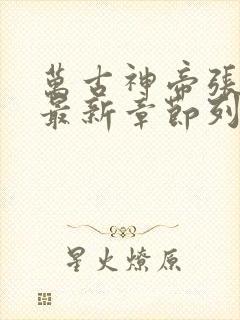 萬古神帝張
最新章節列
星火燎原